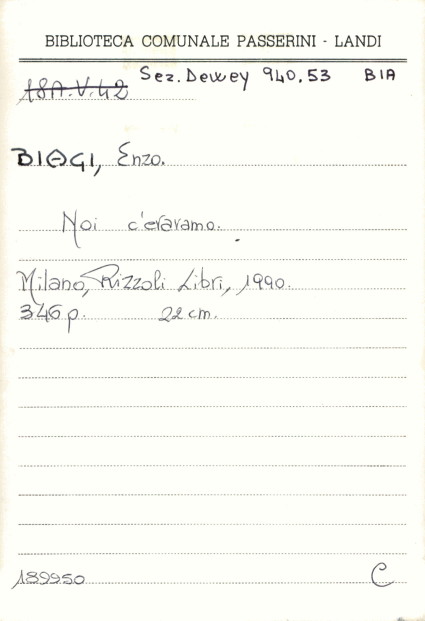 BIBLIOTECA COMUNALE PASSERINI - LANDI
18A.V.42 Sez. Dewey 940.53 BIA
BIAGI, Enzo.
Noi c'eravamo.
Milano, Rizzoli Libri, 1990.
346 p. 22 cm.
189950 C